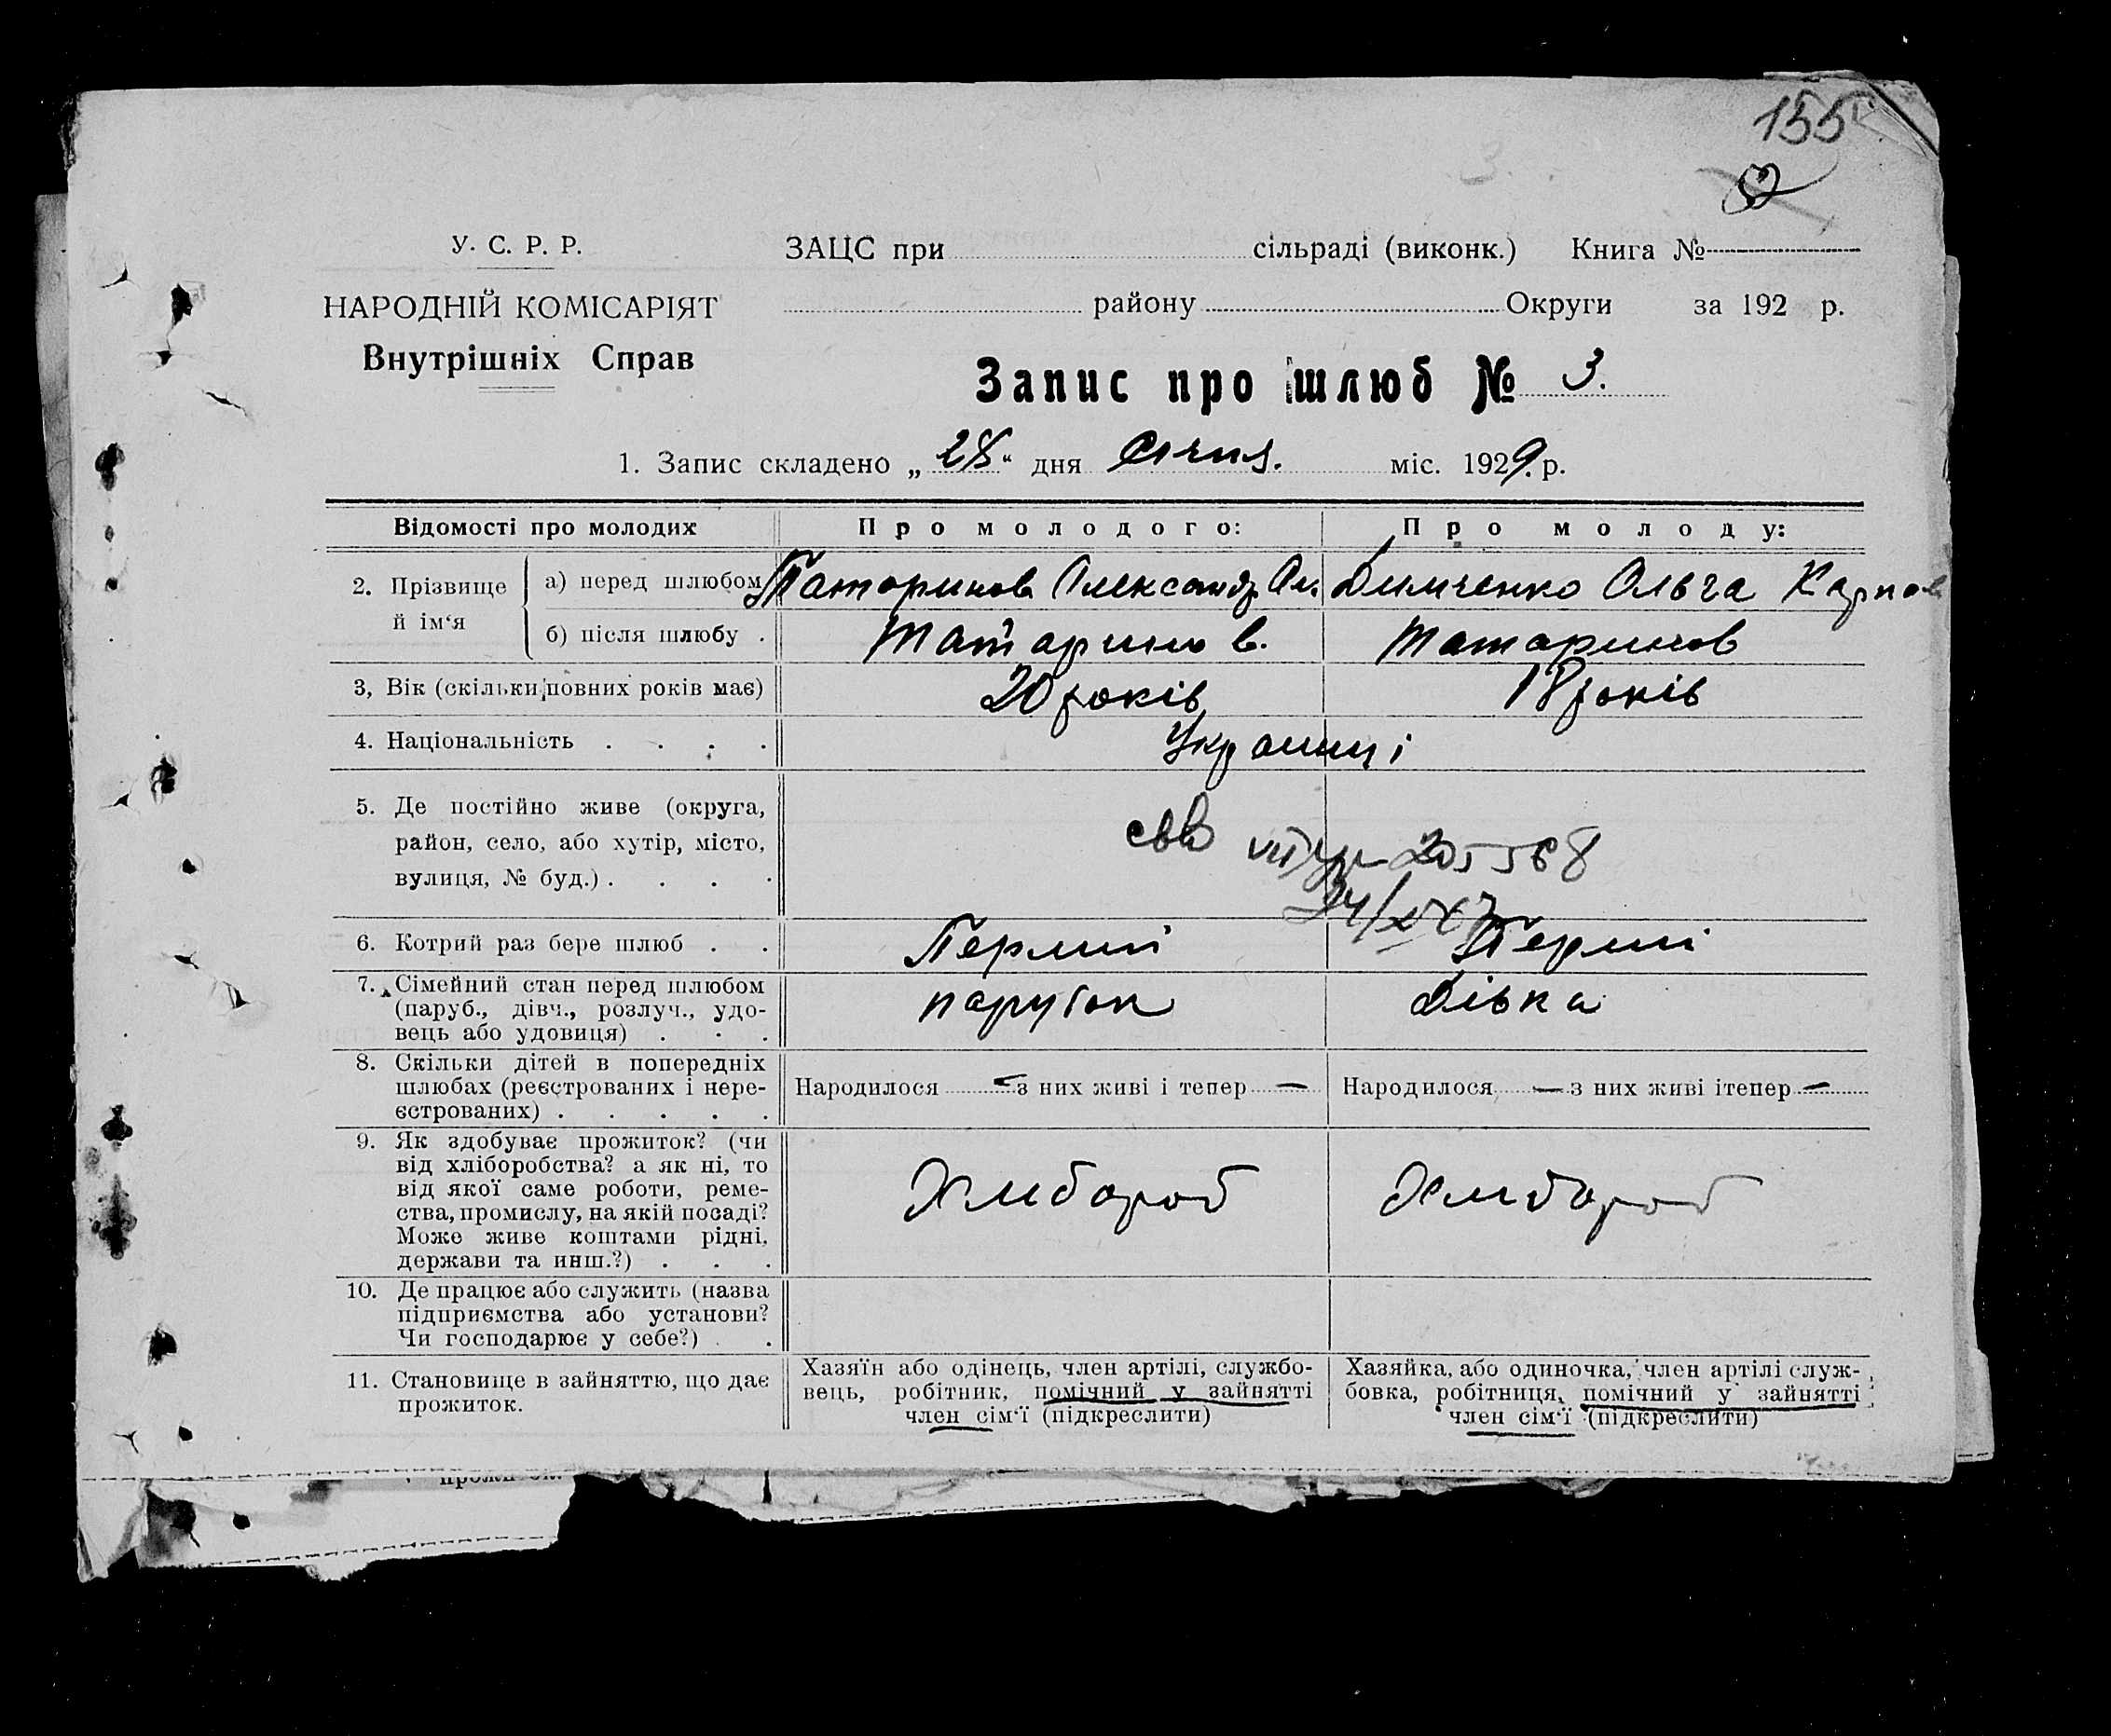 155
У. С. Р. Р.
НАРОДНІЙ КОМІСАРІЯТ
Внутрішніх Справ
ЗАЦС при сільраді (виконк.) Книга №
району Округи за 192 р.
Запис про шлюб № 3.
1. Запис складено „28“ дня Січня. міс. 1929. р.
Відомості про молодих
Про молодого:
Про молоду:
2. Прізвище й ім‘я
а) перед шлюбом
Татаринов Александр Ал.
Димченко Ольга Карпов
б) після шлюбу .
Татаринов.
Татаринов
3, Вік (скільки повних років має)
20 років
18 років
4. Національність . . . .
Українці
5. Де постійно живе (округа,
район, село, або хутір, місто,
вулиця, № буд.) . . . .
205568
6. Котрий раз бере шлюб . .
Перший
Перший
7. Сімейний стан перед шлюбом
(паруб., дівч., розлуч., удо-
вець або удовиця) . . .
парубок
Дівка
8. Скільки дітей в попередніх
шлюбах (реєстрованих і нере-
єстрованих) . . . . .
Народилося — з них живі і тепер —
Народилося — з них живі ітепер —
9. Як здобуває прожиток? (чи
від хліборобства? а як ні, то
від якої саме роботи, реме-
ства, промислу, на якій посаді?
Може живе коштами рідні,
держави та инш.?) . . .
Хлибороб
Хлибороб
10. Де працює або служить (назва
підприємства або установи?
Чи господарює у себе?) . .
11. Становище в зайняттю, що дає
прожиток.
Хазяїн або одінець, член артілі, службо-
вець, робітник, помічний у зайнятті
член сім‘ї (підкреслити)
Хазяйка, або одиночка, член артілі служ-
бовка, робітниця, помічний у зайнятті
член сім‘ї (підкреслити)